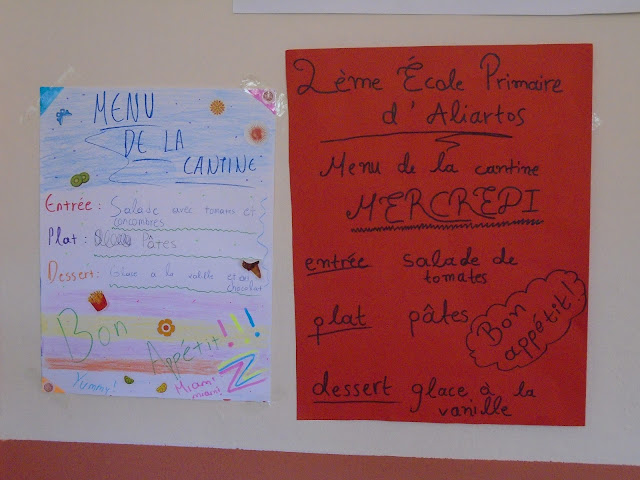 MENU
DE LA
CANTINE
Entrée: Salade avec tomates et
concombres
Plat: Pâtes
Dessert: Glace a la vanille et au
chocolat
Bon
Appétit!!!
Yummy!
Miam!
miam!
2ème École Primaire
d'Aliartos
Menu de la cantine
MERCREDI
entrée salade de
tomates
plat pâtes
Bon
appétit!
dessert glace à la
vanille